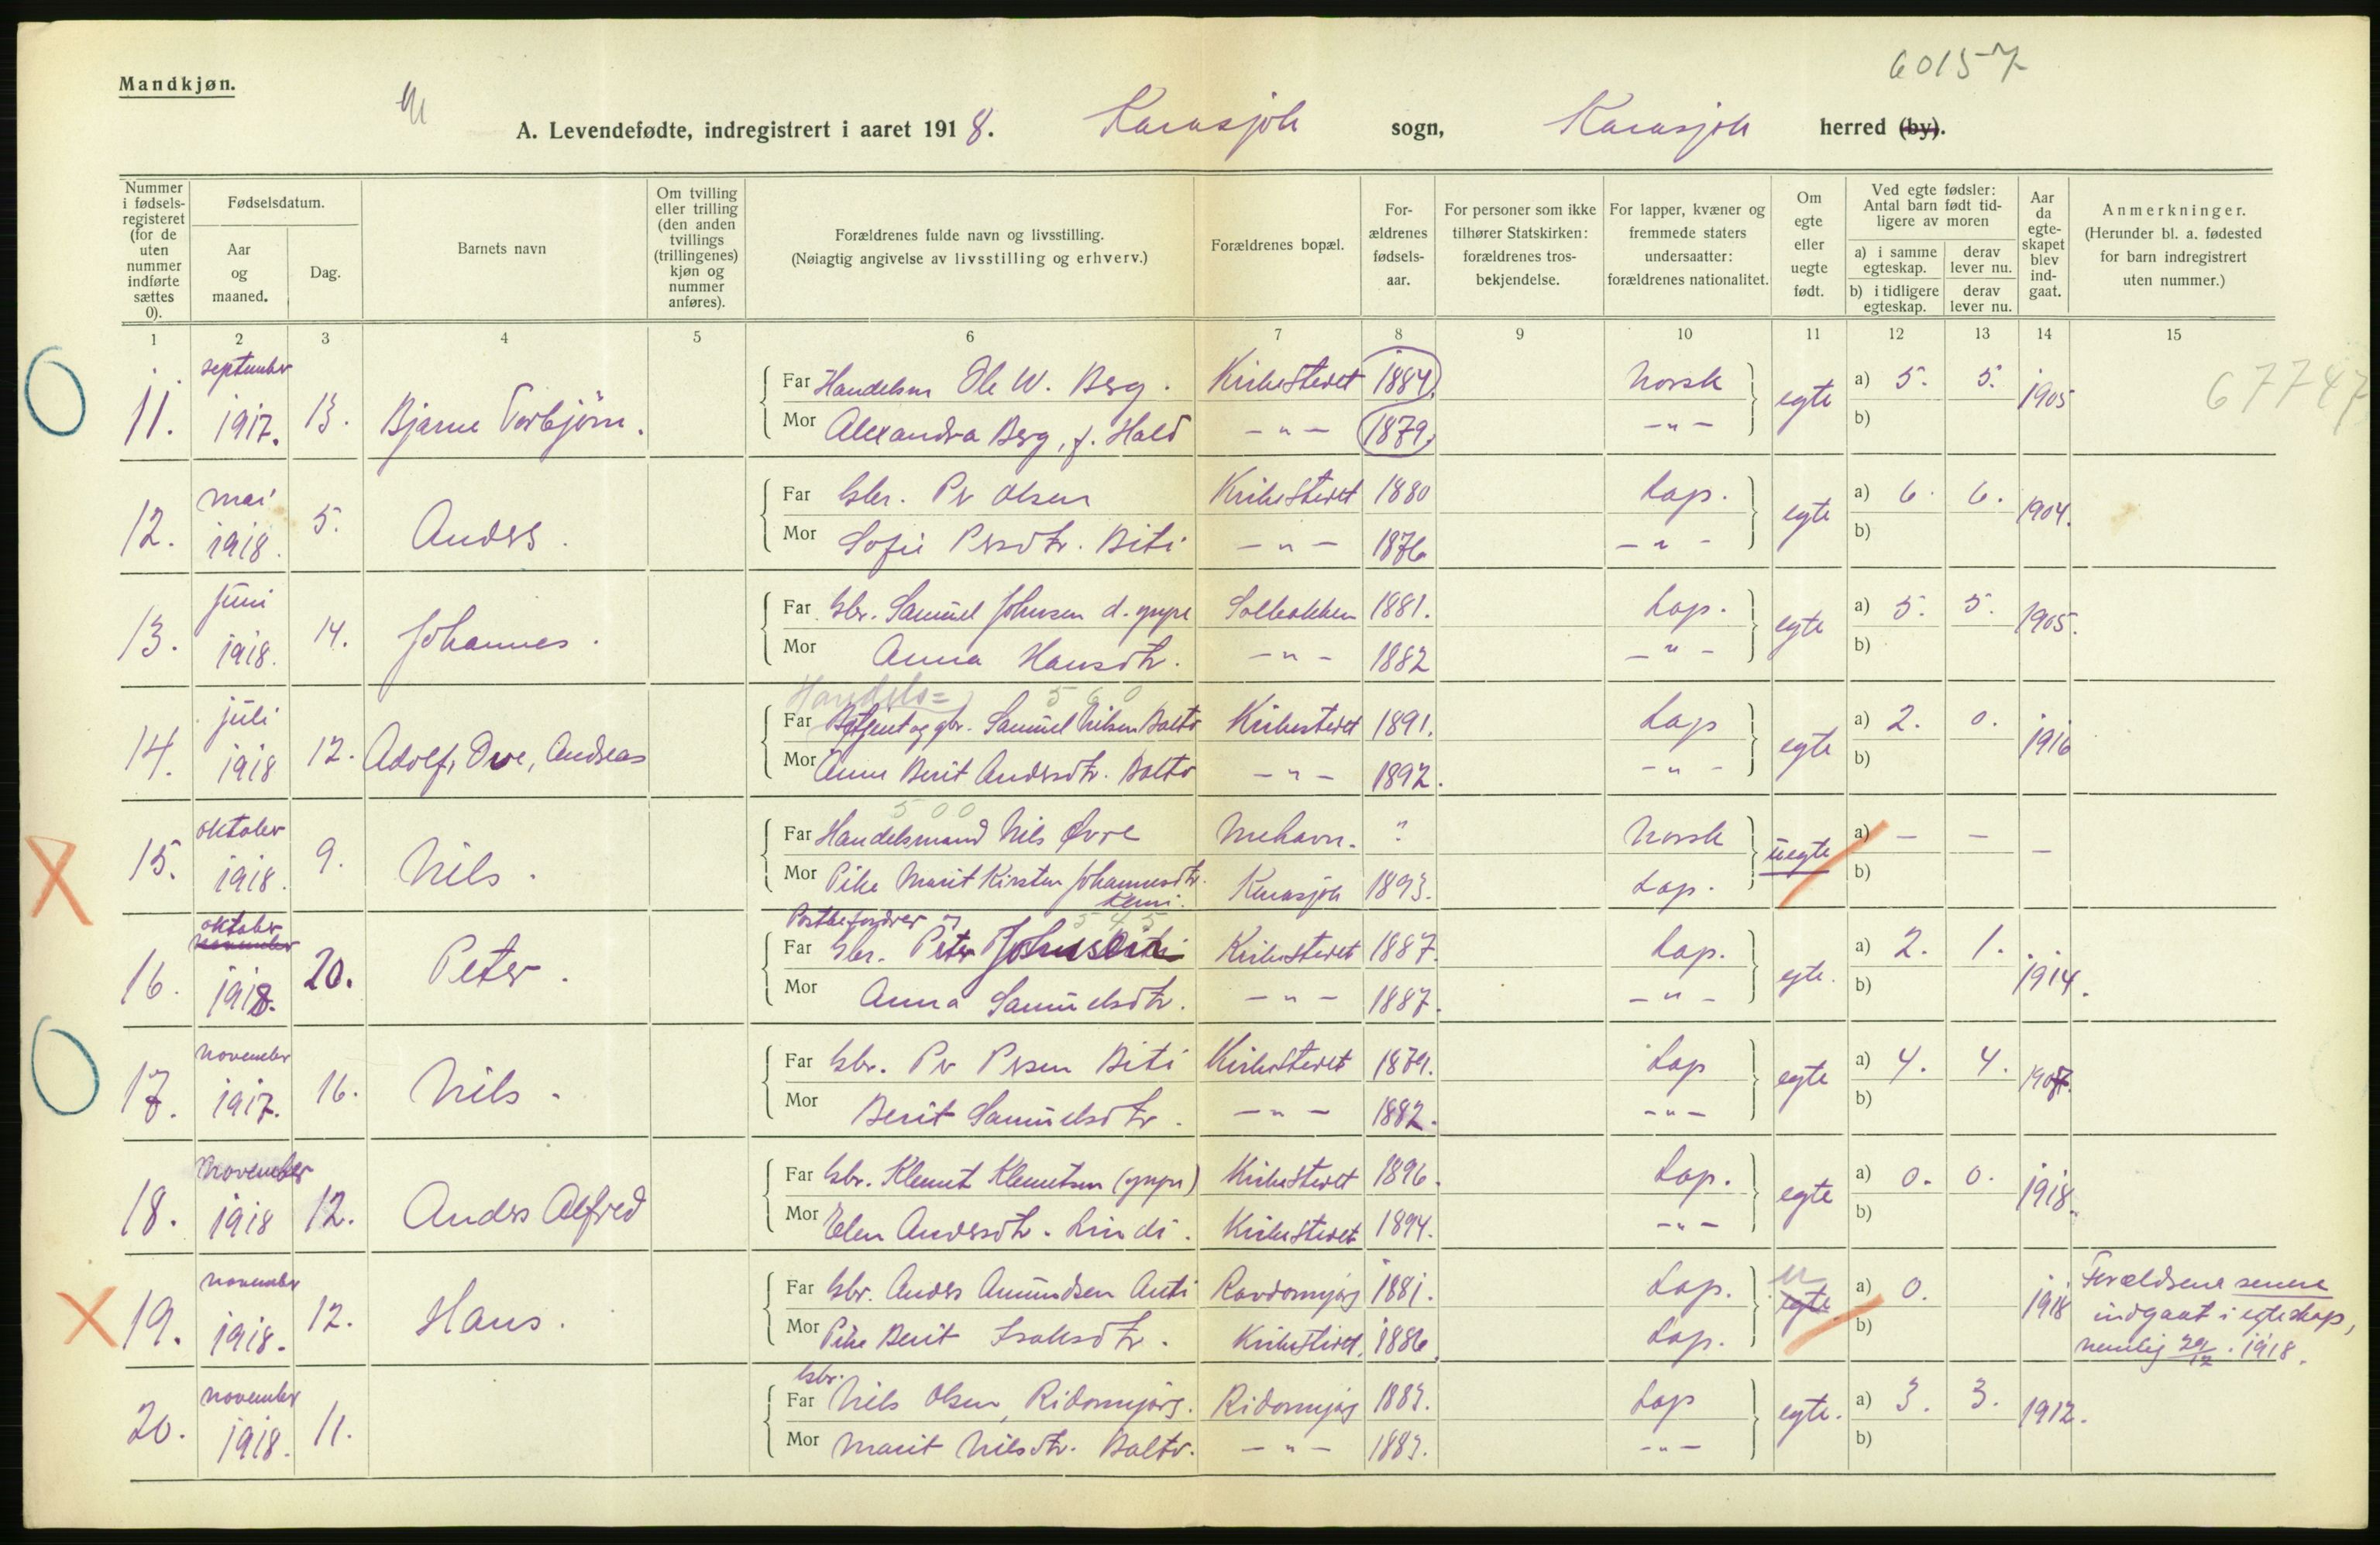 60157
Mandkjøn.
A. Levendefødte, indregistrert i aaret 1918. Karasjok sogn, Karasjok herred (by).
Nummer i fødselsregisteret (for de uten nummer indførte sættes 0).
Fødselsdatum.
Aar og maaned.
Dag.
Barnets navn
Om tvilling eller trilling (den anden tvillings (trillingenes) kjøn og nummer anføres).
Forældrenes fulde navn og livsstilling.
(Nøiagtig angivelse av livsstilling og erhverv.)
Forældrenes bopæl.
For-ældrenes fødsels-aar.
For personer som ikke tilhører Statskirken: forældrenes trosbekjendelse.
For lapper, kvæner og fremmede staters undersaatter: forældrenes nationalitet.
Om egte eller uegte født.
Ved egte fødsler: Antal barn født tidligere av moren
a) i samme egteskap.
derav lever nu.
b) i tidligere egteskap.
derav lever nu.
Aar da egteskapet blev indgaat.
Anmerkninger.
(Herunder bl. a. fødested for barn indregistrert uten nummer.)
1 2 3 4 5 6 7 8 9 10 11 12 13 14 15
11. september 1917. 13. Bjarne Torbjörn. Far Handelsm Ole W. Berg. Kirkestedet 1884. Norsk egte a) 5. 5. 1905 67747
Mor Alexandra Berg, f. Hald -"- 1879. -"- b)
12. mai 1918. 5. Anders. Far Gbr. Per Olsen Kirkestedet 1880 Lap. egte a) 6. 6. 1904.
Mor Sofie Persdtr. Biti -"- 1876 -"- b)
13. juni 1918. 14. Johannes. Far Gbr. Samuel Johnsen d. yngre 1881. Lap. egte a) 5. 5. 1905.
Mor Anna Hansdtr. -"- 1882 -"- b)
Handels= 560
14. juli 1918 12. Adolf, Ove, Andreas Far Betjent og gbr. Samuel Nilsen Balto Kirkestedet 1891. Lap egte a) 2. 0. 1916
Mor Anne Berit Andersdtr. Balto -"- 1892. -"- b)
500
15. oktober 1918. 9. Nils. Far Handelsmand Nils Øvre Mehavn. ? Norsk uegte a) - - -
Mor Pike Marit Kirsten Johannesdtr. Kemi. Karasjok 1893. Lap. b)
Postbefordrer og 545
16. oktober november 1918. 20. Peter. Far Gbr. Peter Johnsen Kirkestedet 1887. Lap. egte. a) 2. 1. 1914.
Mor Anna Samuelsdtr. -"- 1887. -"- b)
17. november 1917. 16. Nils. Far Gbr. Per Persen Biti Kirkestedet 1879. Lap egte a) 4. 4. 1907.
Mor Berit Samuelsdtr. -"- 1882. -"- b)
18. november 1918 12. Anders Alfred Far Gbr. Klemet Klemetsen (yngre) Kirkestedet 1896. Lap. egte a) 0. 0. 1918.
Mor Elen Andersdtr. Lindi. Kirkestedet 1894. -"- b)
19. november 1918. 12. Hans. Far Gbr. Anders Amundsen Anti Ravdomnjarg 1881. Lap. u egte a) 0. 1918 Forældrene senere
Mor Pike Berit Isaksdtr. Kirkestedet. 1886. Lap. b) indgaat i egteskap,
nemlig 29/12. 1918.
20. november 1918. 11. Gbr. Far Nils Olsen, Ridomnjarg. Ridomnjarg 1883. Lap egte. a) 3. 3. 1912.
Mor Marit Nilsdtr. Balto. -"- 1883. -"- b)